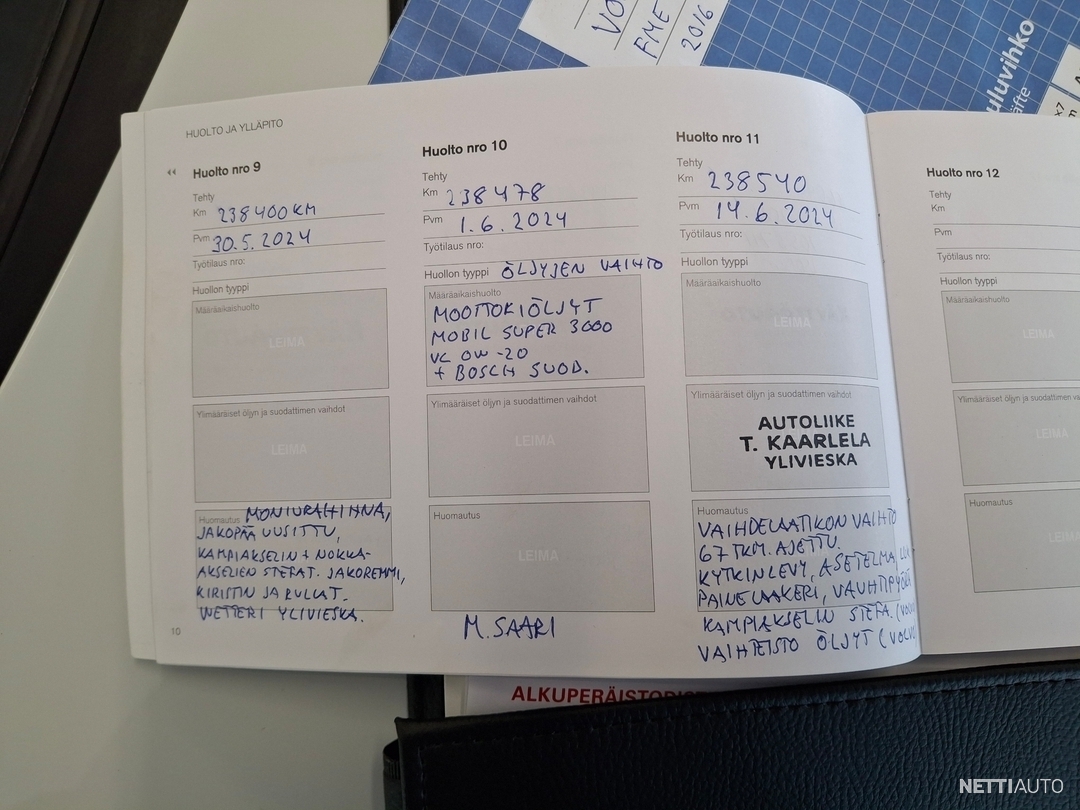 VO
FME
2016
uluvihko
äfte
HUOLTO JA YLLÄPITO
Huolto nro 9
Tehty
Km 238400KM
Pvm 30.5.2024
Työtilaus nro:
Huollon tyyppi
Määräaikaishuolto
LEIMA
Ylimääräiset öljyn ja suodattimen vaihdot
LEIMA
Huomautus MONIURAHIHNA,
JAKOPÄÄ UUSITTU,
KAMPIAKSELIN + NOKKA-
AKSELIEN STEFAT. JAKOREMMI,
KIRISTIN JA RULLAT.
WETTERI YLIVIESKA.
10
Huolto nro 10
Tehty
Km 238478
Pvm 1.6.2024
Työtilaus nro:
Huollon tyyppi ÖLJYJEN VAIHTO
Määräaikaishuolto
MOOTTORIÖLJYT
MOBIL SUPER 3000
VC 0W-20
+ BOSCH SUOD.
Ylimääräiset öljyn ja suodattimen vaihdot
LEIMA
Huomautus
LEIMA
M. SAARI
Huolto nro 11
Tehty
Km 238540
Pvm 14.6.2024
Työtilaus nro:
Huollon tyyppi
Määräaikaishuolto
LEIMA
Ylimääräiset öljyn ja suodattimen vaihdot
AUTOLIIKE
T. KAARLELA
YLIVIESKA
Huomautus
VAIHDELAATIKON VAIHTO
67 TKM. AJETTU.
KYTKINLEVY, ASETELMA,
PAINELAAKERI, VAUHTIPYÖRÄ
KAMPIAKSELIN STEFA. (VOLVO
VAIHTEISTO ÖLJYT (VOLVO
Huolto nro 12
Tehty
Km
Pvm
Työtilaus nro:
Huollon tyyppi
Määräaikaishuolto
LEIMA
Ylimääräiset öljyn ja suodattimen
LEIMA
Huomautus
LEIMA
ALKUPERÄISTODIS
NETTIAUTO